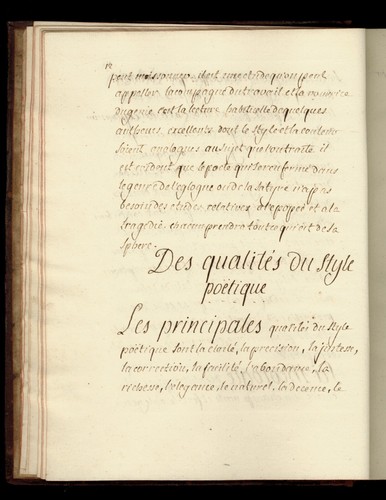 18
peut moissonner. il est une etude qu'on peut
appeller la compagne du travail et la nourrice
du genie c'est la lecture habituelle de quelques
autheurs excellents dont le style et la couleur
soient analogues au sujet que l'on traite. il
est evident que le poete qui se renferme dans
le genre de l'eglogue ou de la satyre n'a pas
besoin des etudes relatives à l'epopée et a la
tragedie chacun prendra tout ce qui est de sa
sphere.
Des qualités du style
poëtique
Les principales qualités du style
poëtique sont la clarté, la precision, la justesse,
la correction, la facilité, l'abondance, la
richesse, l'elegance, le naturel, la decence, le